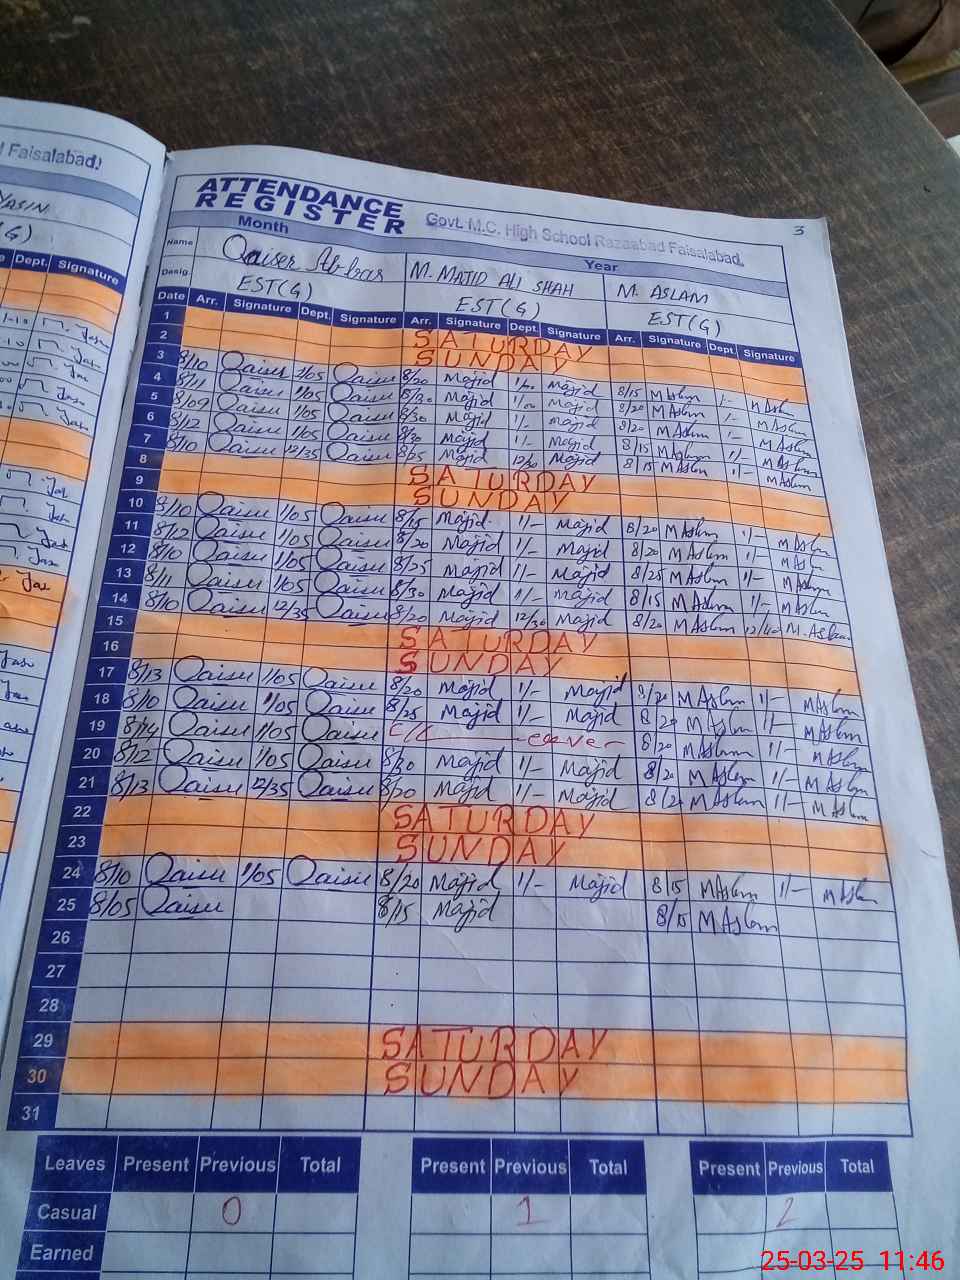 Faisalabad.
YASIN
Dept. Signature
ATTENDANCE
REGISTER
Govt. M.C. High School Razaabad Faisalabad.
3
Month Year
Name Qaiser Abbas M. MAJID ALI SHAH M. ASLAM
Desig. EST(G) EST(G) EST(G)
Date Arr. Signature Dept. Signature Arr. Signature Dept. Signature Arr. Signature Dept. Signature
1 SATURDAY
2 SUNDAY
3 8/10 Qaiser 1/05 Qaiser 8/20 Majid 1/00 Majid 8/15 M Aslam 1/- M Aslam
4 8/11 Qaiser 1/05 Qaiser 8/20 Majid 1/00 Majid 8/20 M Aslam 1/- M Aslam
5 8/09 Qaiser 1/05 Qaiser 8/30 Majid 1/- Majid 8/20 M Aslam 1/- M Aslam
6 8/12 Qaiser 1/05 Qaiser 8/30 Majid 1/- Majid 8/15 M Aslam 1/- M Aslam
7 8/10 Qaiser 12/35 Qaiser 8/25 Majid 12/30 Majid 8/15 M Aslam 1/- M Aslam
8 SATURDAY
9 SUNDAY
10 8/10 Qaiser 1/05 Qaiser 8/15 Majid 1/- Majid 8/20 M Aslam 1/- M Aslam
11 8/12 Qaiser 1/05 Qaiser 8/20 Majid 1/- Majid 8/20 M Aslam 1/- M Aslam
12 8/10 Qaiser 1/05 Qaiser 8/25 Majid 1/- Majid 8/25 M Aslam 1/- M Aslam
13 8/11 Qaiser 1/05 Qaiser 8/30 Majid 1/- Majid 8/15 M Aslam 1/- M Aslam
14 8/10 Qaiser 12/35 Qaiser 8/20 Majid 12/30 Majid 8/20 M Aslam 12/40 M. Aslam
15 SATURDAY
16 SUNDAY
17 8/13 Qaiser 1/05 Qaiser 8/20 Majid 1/- Majid 8/20 M Aslam 1/- M Aslam
18 8/10 Qaiser 1/05 Qaiser 8/25 Majid 1/- Majid 8/20 M Aslam 1/- M Aslam
19 8/14 Qaiser 1/05 Qaiser 8/20 M Aslam 1/- M Aslam
20 8/12 Qaiser 1/05 Qaiser 8/20 Majid 1/- Majid 8/20 M Aslam 1/- M Aslam
21 8/13 Qaiser 12/35 Qaiser 8/20 Majid 1/- Majid 8/20 M Aslam 1/- M Aslam
22 SATURDAY
23 SUNDAY
24 8/10 Qaiser 1/05 Qaiser 8/20 Majid 1/- Majid 8/15 M Aslam 1/- M Aslam
25 8/05 Qaiser 8/15 Majid 8/15 M Aslam
26
27
28
29 SATURDAY
30 SUNDAY
31
Leaves Present Previous Total Present Previous Total Present Previous Total
Casual 0 1 2
Earned
25-03-25 11:46